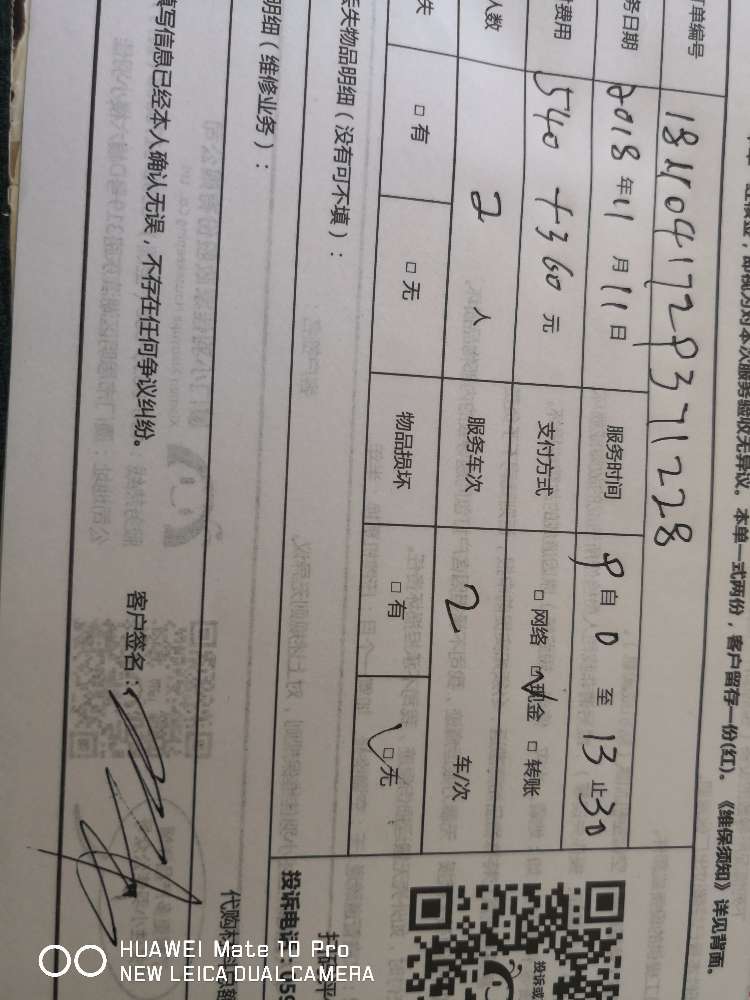 ，即视为对本次服务验收无异议。本单一式两份，客户留存一份(红)。《维保须知》详见背面。
单编号 181104172837 1228
务日期 2018年11月11日 服务时间 9自0至13止30
费用 540+360元 支付方式 □网络 □现金 □转账
人数 2人 服务车次 2 车/次
失 □有 □无 物品损坏 □有 □无
丢失物品明细（没有可不填）：
明细（维修业务）：
填写信息已经本人确认无误，不存在任何争议纠纷。
客户签名：
投诉电话：
HUAWEI Mate 10 Pro
NEW LEICA DUAL CAMERA